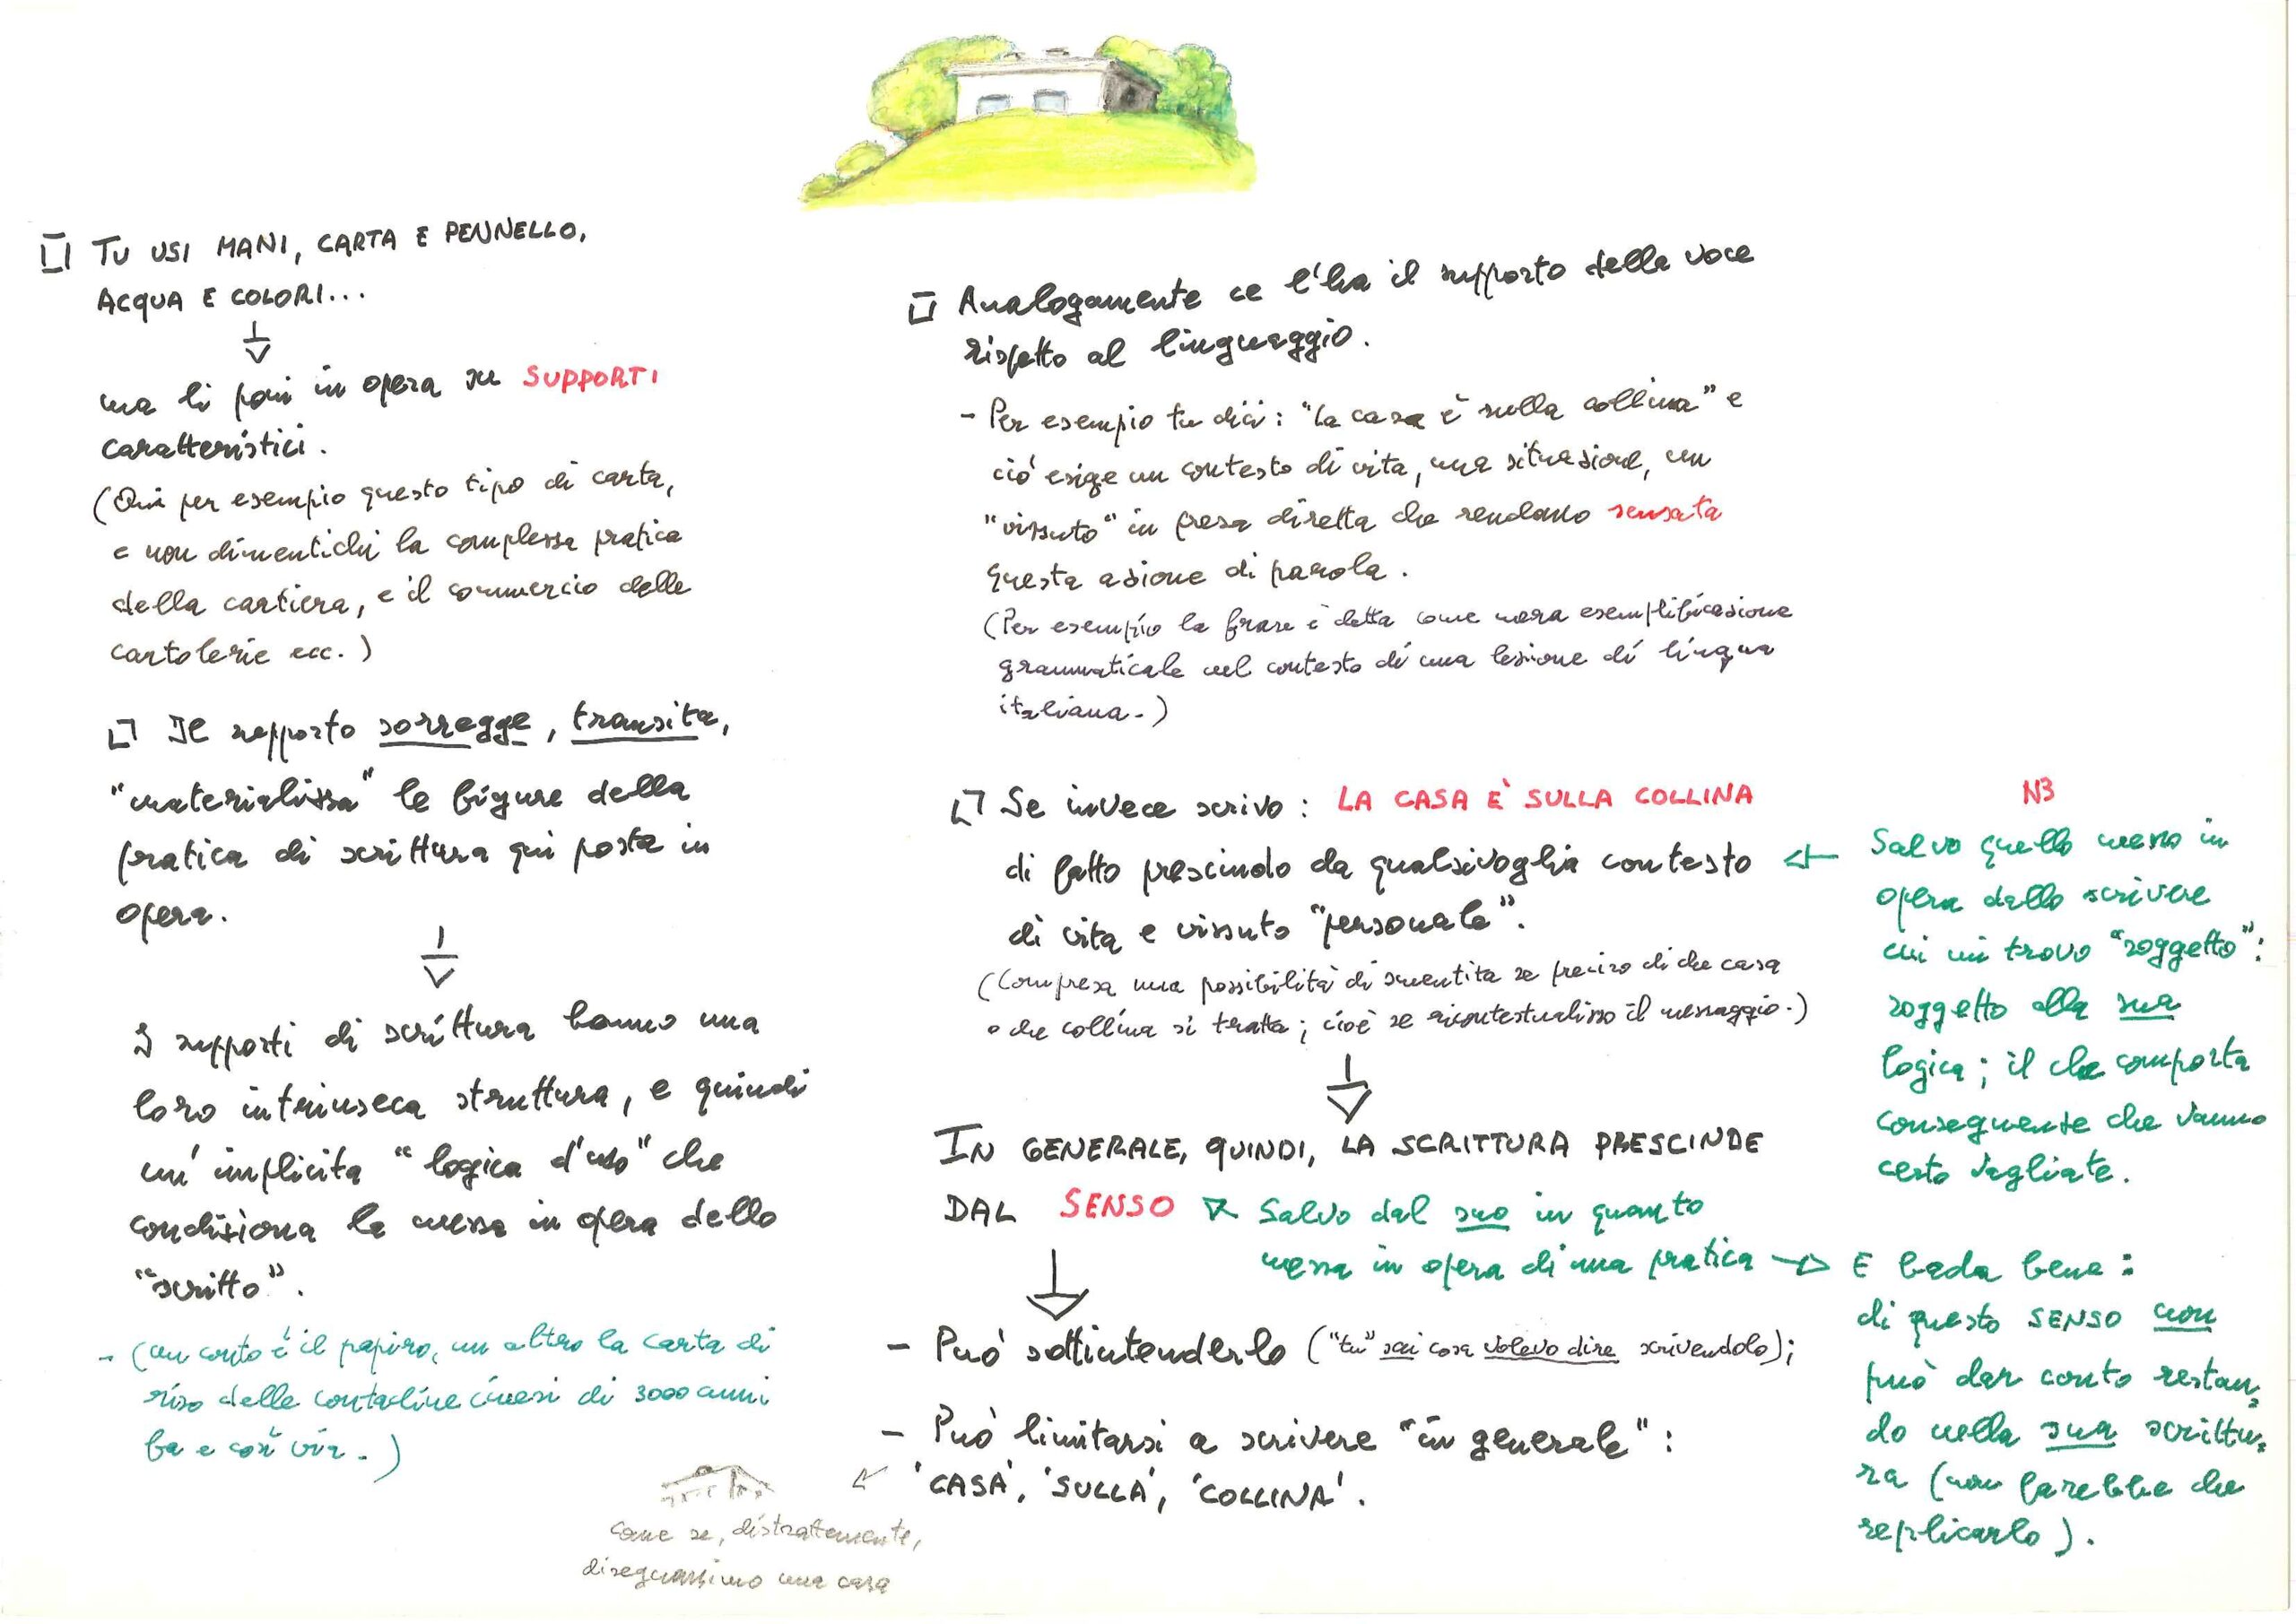 TU USI MANI, CARTA E PENNELLO,
ACQUA E COLORI...
ma li poni in opera su SUPPORTI
caratteristici.
(Qui per esempio questo tipo di carta,
e non dimentichi la complessa pratica
della cartiera, e il commercio delle
cartolerie ecc.)
Il supporto sorregge, transita,
"materializza" le figure della
pratica di scrittura qui posta in
opera.
I supporti di scrittura hanno una
loro intrinseca struttura, e quindi
un'implicita "logica d'uso" che
condiziona la messa in opera dello
"scritto".
- (un conto è il papiro, un altro la carta di
riso delle contadine cinesi di 3000 anni
fa e così via.)
Analogamente ce l'ha il supporto della voce
rispetto al linguaggio.
- Per esempio tu dici: "La casa è sulla collina" e
ciò esige un contesto di vita, una situazione, un
"vissuto" in presa diretta che rendano sensata
questa azione di parola.
(Per esempio la frase è detta come mera esemplificazione
grammaticale nel contesto di una lezione di lingua
italiana.)
Se invece scrivo: LA CASA È SULLA COLLINA
di fatto prescindo da qualsivoglia contesto
di vita e vissuto "personale".
(Compresa una possibilità di smentita se preciso di che casa
o che collina si tratta; cioè se ricontestualizzo il messaggio.)
IN GENERALE, QUINDI, LA SCRITTURA PRESCINDE
DAL SENSO
Salvo dal suo in quanto
messa in opera di una pratica
- Può sottintenderlo ("tu" sai cosa volevo dire scrivendolo);
- Può limitarsi a scrivere "in generale":
'CASA', 'SULLA', 'COLLINA'.
come se, distrattamente,
disegnassimo una casa
N3
Salvo quello messo in
opera dallo scrivere
cui mi trovo "soggetto":
soggetto alla sua
logica; il che comporta
conseguenze che vanno
certo vagliate.
E bada bene:
di questo SENSO non
può dar conto restan=
do nella sua scrittu=
ra (non farebbe che
replicarlo).